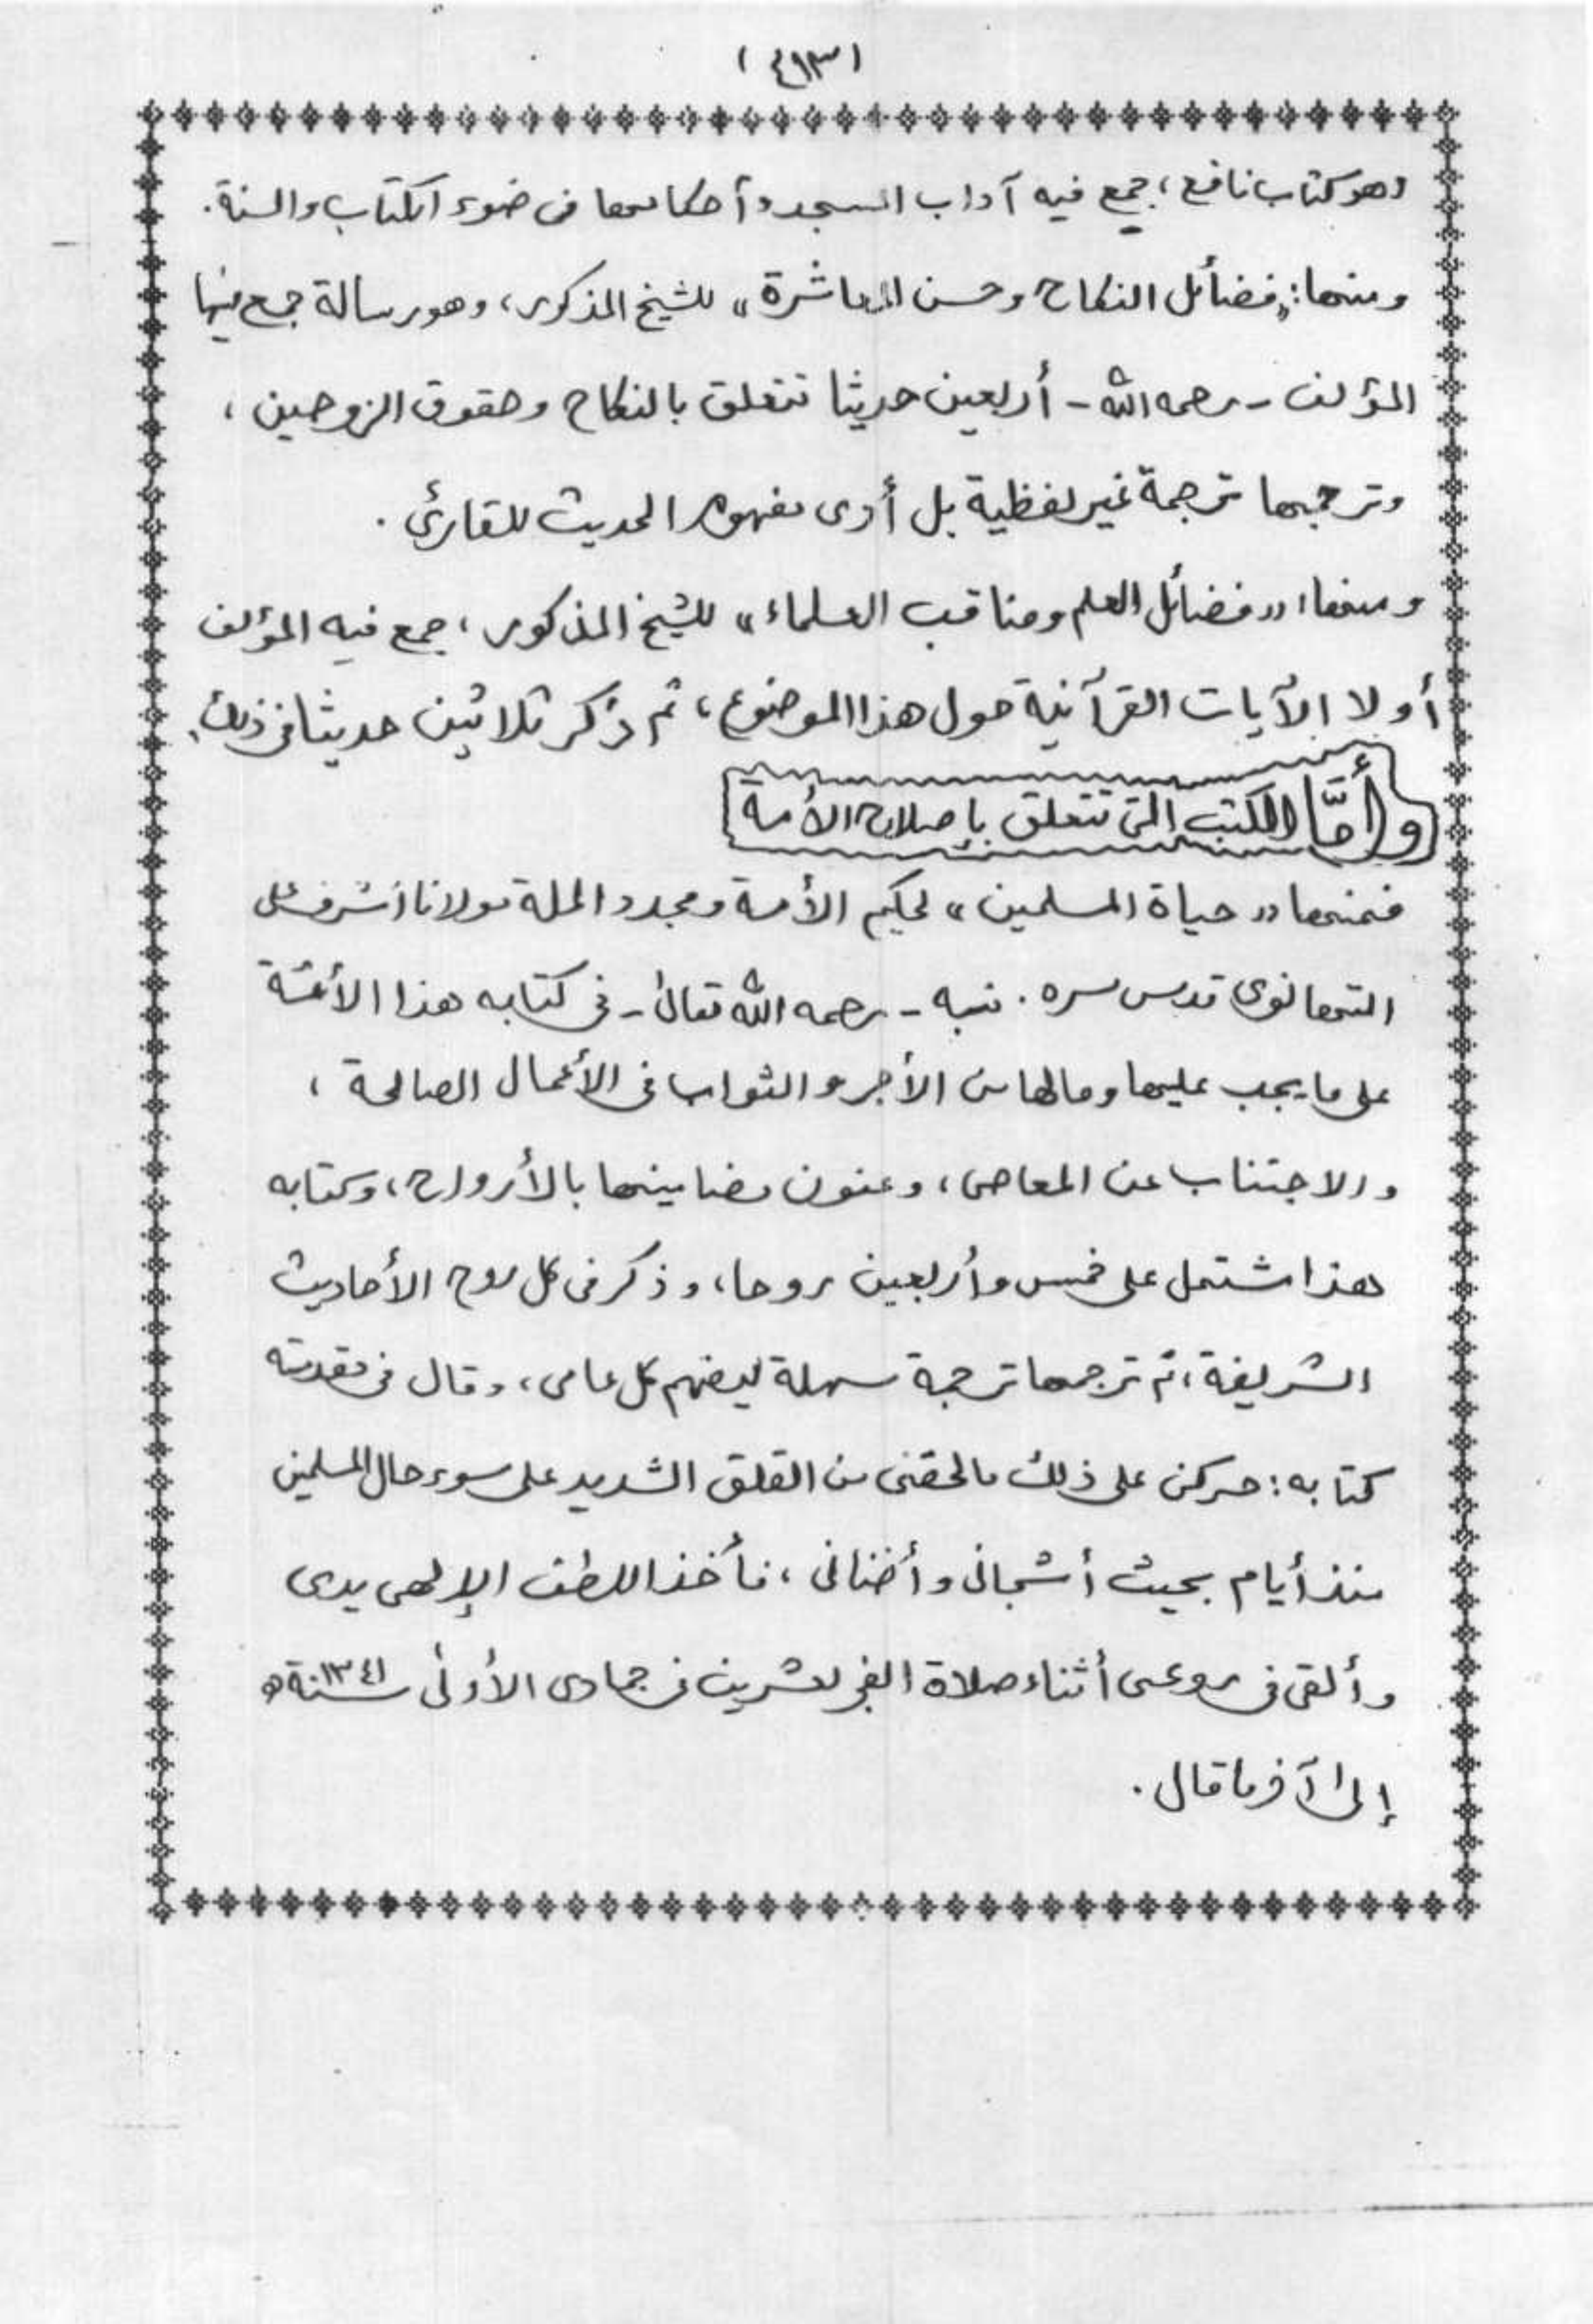 (٤٩٣)
وهو كتاب نافع، جمع فيه آداب المسجد وأحكامها فى ضوء الكتاب والسنة.
ومنها: «فضائل النكاح وحسن المعاشرة» للشيخ المذكور، وهو رسالة جمع فيها
المؤلف - رحمه الله - أربعين حديثا تتعلق بالنكاح وحقوق الزوجين،
وترجمها ترجمة غير لفظية بل أدى مفهوم الحديث للقارئ.
ومنها: «فضائل العلم ومناقب العلماء» للشيخ المذكور، جمع فيه المؤلف
أولا الآيات القرآنية حول هذا الموضوع، ثم ذكر ثلاثين حديثا فى ذلك.
وأمّا الكتب التى تتعلق بإصلاح الأمة
فمنها «حياة المسلمين» لحكيم الأمة ومجدد الملة مولانا أشرف على
التهانوى قدس سره. نبه - رحمه الله تعالىٰ - فى كتابه هذا الأمة
على ما يجب عليها وما لها من الأجر والثواب فى الأعمال الصالحة،
والاجتناب عن المعاصى، وعنون مضامينها بالأرواح، وكتابه
هذا اشتمل على خمس وأربعين روحا، وذكر فى كل روح الأحاديث
الشريفة، ثم ترجمها ترجمة سهلة ليفهم كل عامى، وقال فى مقدمته
كتابه: حركنى على ذلك ما لحقنى من القلق الشديد على سوء حال المسلمين
منذ أيام بحيث أشجانى وأضنانى، فأخذ اللطف الإلهى يدى
وألقى فى روعى أثناء صلاة الفجر لعشرين فى جمادى الأولىٰ سنة ١٣٤١ه
إلىٰ آخر ما قال.